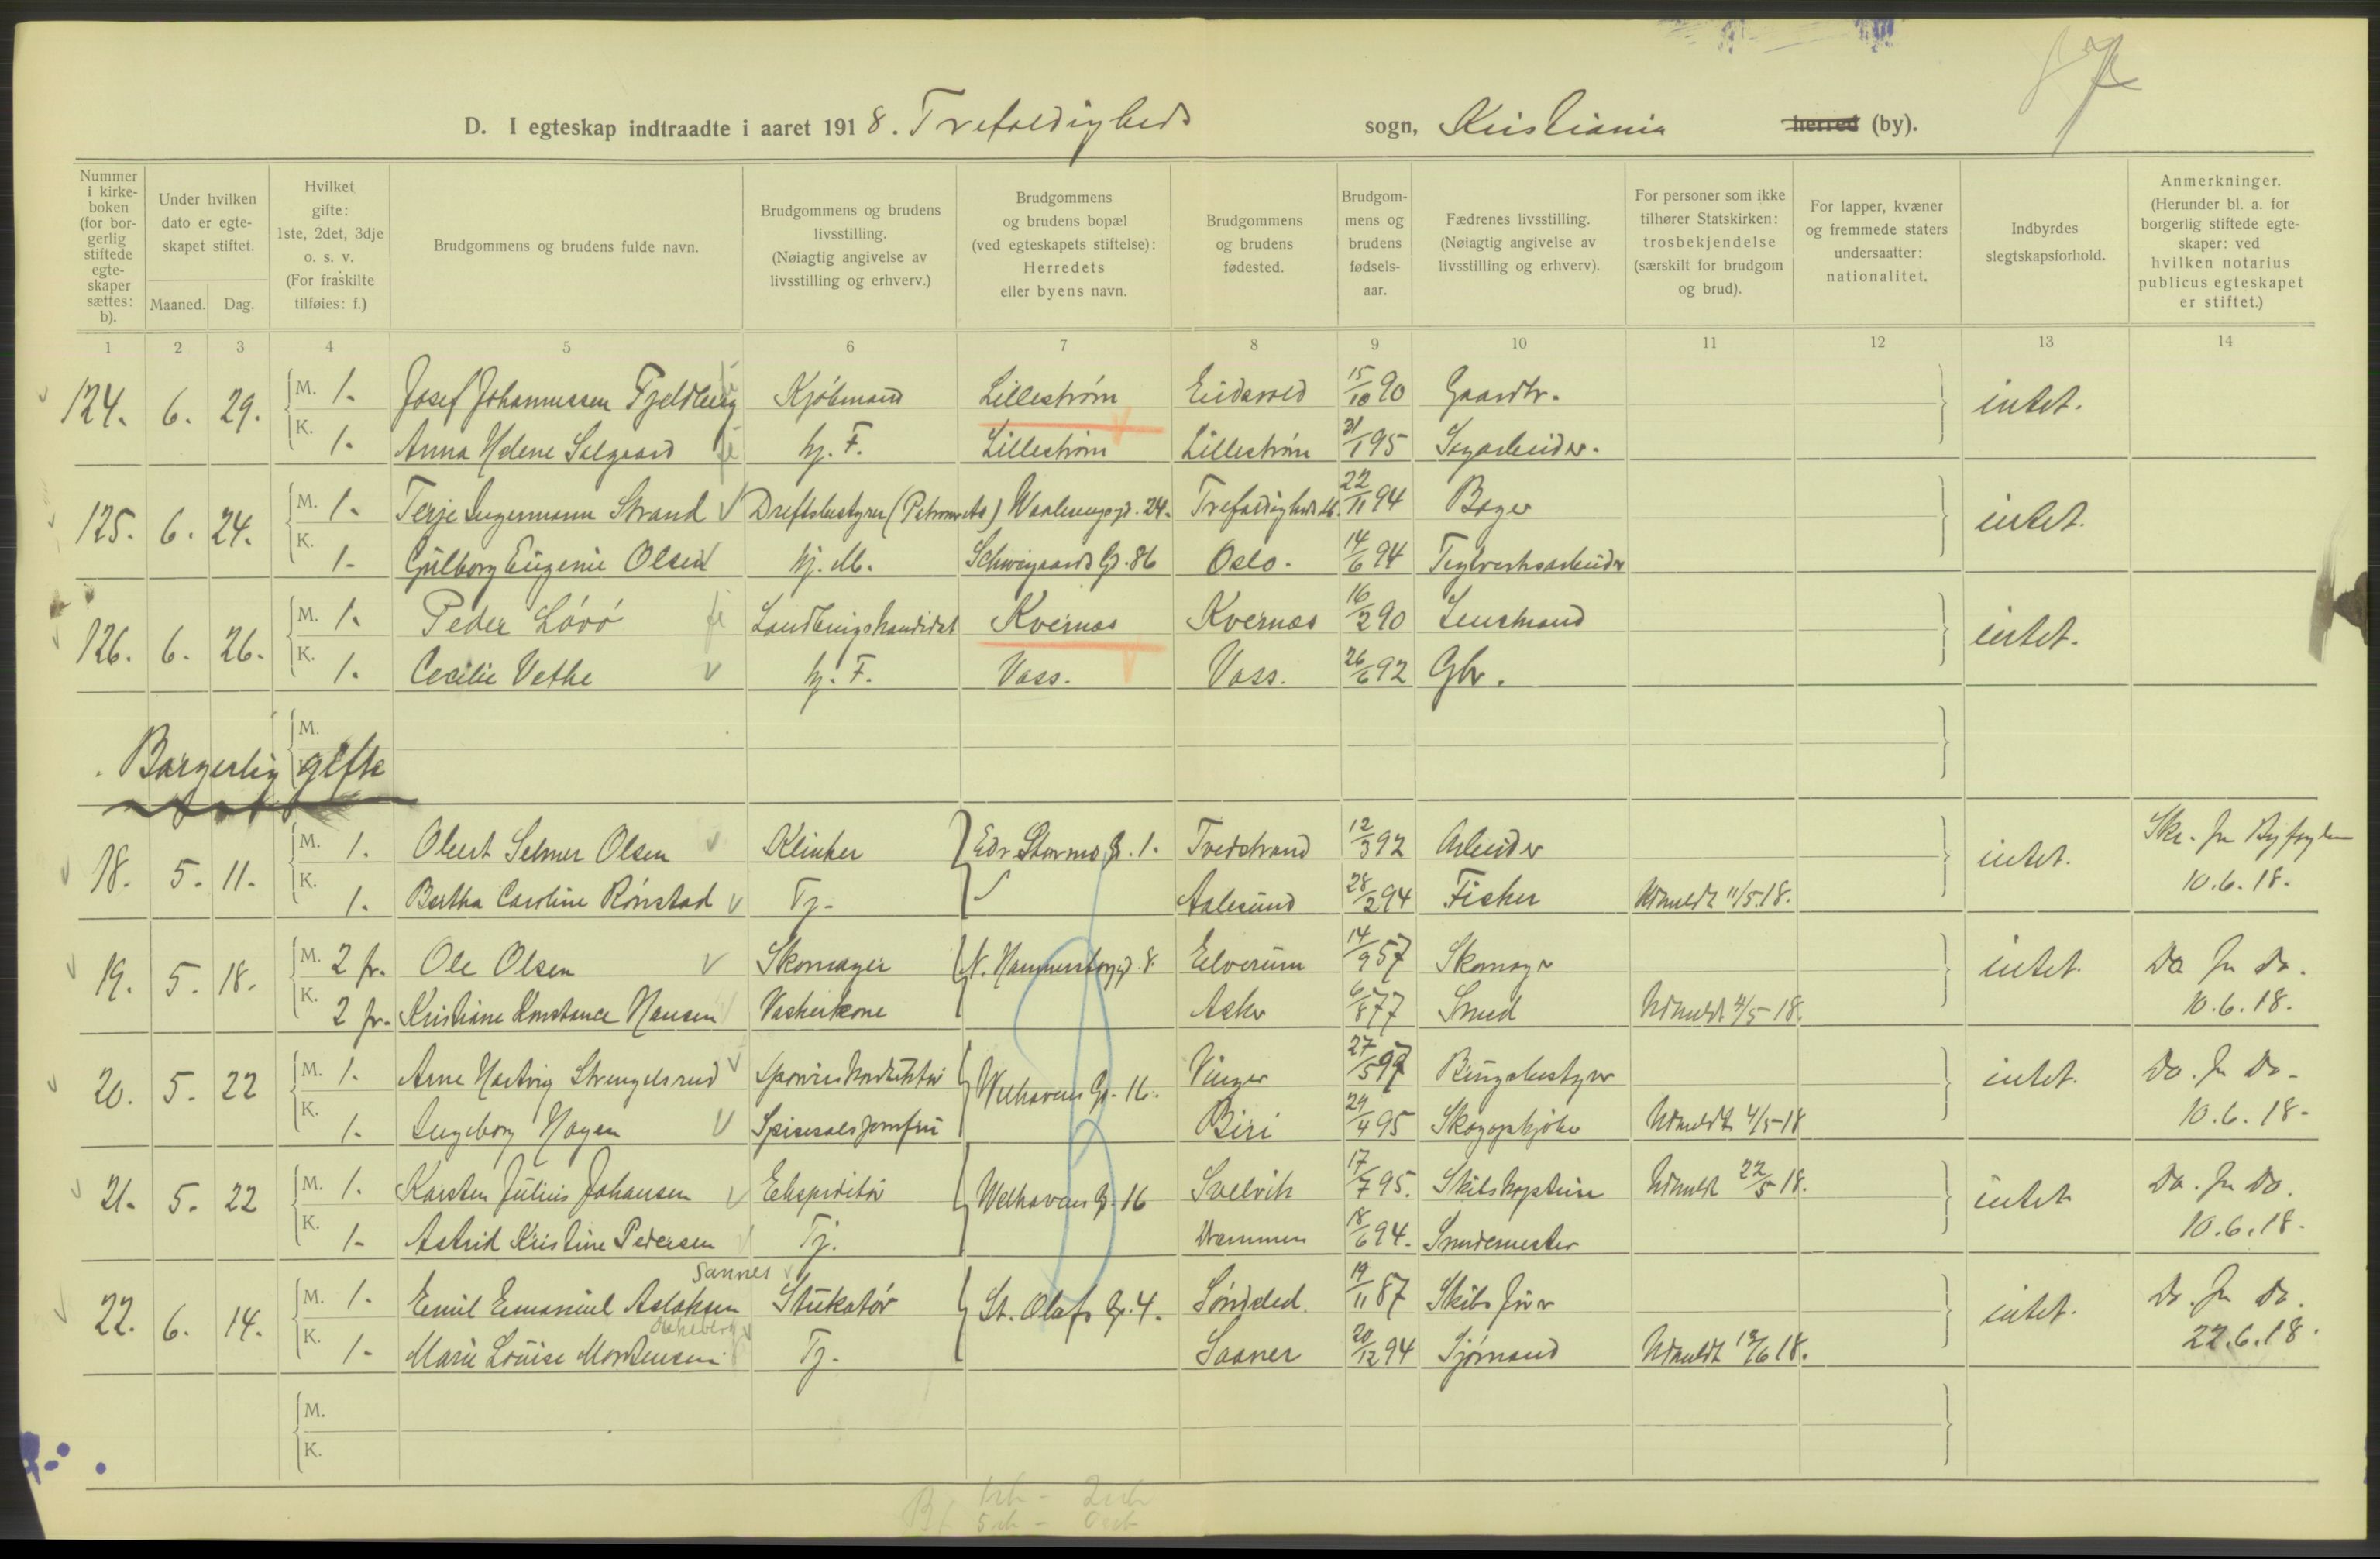 D. I egteskap indtraadte i aaret 1918. Trefoldigheds sogn, Kristiania herred (by).
Nummer i kirkeboken (for borgerlig stiftede egteskaper sættes: b).
Under hvilken dato er egteskapet stiftet.
Maaned. Dag.
Hvilket gifte: 1ste, 2det, 3dje o. s. v. (For fraskilte tilføies: f.)
Brudgommens og brudens fulde navn.
Brudgommens og brudens livsstilling. (Nøiagtig angivelse av livsstilling og erhverv.)
Brudgommens og brudens bopæl (ved egteskapets stiftelse): Herredets eller byens navn.
Brudgommens og brudens fødested.
Brudgommens og brudens fødselsaar.
Fædrenes livsstilling. (Nøiagtig angivelse av livsstilling og erhverv).
For personer som ikke tilhører Statskirken: trosbekjendelse (særskilt for brudgom og brud).
For lapper, kvæner og fremmede staters undersaatter: nationalitet.
Indbyrdes slegtskapsforhold.
Anmerkninger. (Herunder bl. a. for borgerlig stiftede egteskaper: ved hvilken notarius publicus egteskapet er stiftet.)
1 2 3 4 5 6 7 8 9 10 11 12 13 14
124. 6. 29. M. 1. Josef Johannessen Fjeldberg Kjøbmand Lillestrøm Eidsvold 15/10 90 Gaardbr. intet.
K. 1. Anna Helene Solgaard hj. F. Lillestrøm Lillestrøm 31/1 95 Sagarbeider.
125. 6. 24. M. 1. Terje Ingermann Strand Driftsbestyrer Vaalerenggd. 24. Trefoldigheds 22/11 94 Bager intet.
K. 1. Gulborg Eugenie Olsen hj. M. Schweigaards Gd. 86 Oslo. 14/6 94 Teglverksarbeider
126. 6. 26. M. 1. Peder Lóvó Landbrugskandidat Kvernæs Kvernæs 16/2 90 Lensmand intet.
K. 1. Cecilie Vethe hj. F. Voss. Voss. 26/6 92 Gbr.
M.
Borgerlig gifte
18. 5. 11. M. 1. Olbert Selmer Olsen Klinker Edv. Storms G. 1. Tvedstrand 12/3 92 Arbeider intet. Skr. fra Byfogden
K. 1. Bertha Caroline Rónstad Tj. Aalesund 28/2 94 Fisker Udmeldt 11/5.18. 10.6.18.
19. 5. 18. M. 2 fr. Ole Olsen Skomager N. Hammersborggd. 8. Elverum 14/9 57 Skomager intet. Do fra do.
K. 2 fr. Kristiane Konstance Hansen Vaskerkone Asker 6/8 77 Smed Udmeldt 4/5-18. 10.6.18.
20. 5. 22 M. 1. Arne Hartvig Strengelsrud Sporveiskonduktør Welhavens G. 16. Vinger 27/5 97 Brugsbestyrer intet. Do. fra Do.
K. 1. Ingeborg Hagen Spisesalsjomfru Biri 29/4 95 Skogopkjøber Udmeldt 4/5-18 10.6.18.
21. 5. 22 M. 1. Karsten Julius Johansen Ekspeditór Welhavens G. 16 Svelvik 17/7 95. Skibskaptein Udmeldt 22/5 18. intet Do. fra Do.
K. 1. Astrid Kristine Pedersen Tj. Drammen 18/6 94. Snedkermester 10.6.18.
Sannes
22. 6. 14. M. 1. Emil Emanuel Aslaksen Stukatør St. Olafs G. 4. Søndeled. 19/11 87 Skibsfører intet. Do. fra Do.
K. 1. Marie Louise Mortensen Tj. Saaner 20/12 94 Sjømand Udmeldt 13/6 18. 22.6.18.
M.
K.